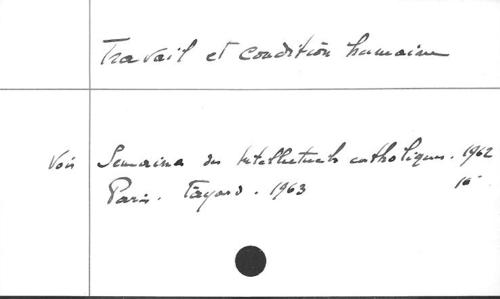 Travail et condition humaine
Voir Semaine des Intellectuels catholiques. 1962
Paris. Fayard. 1963 16°